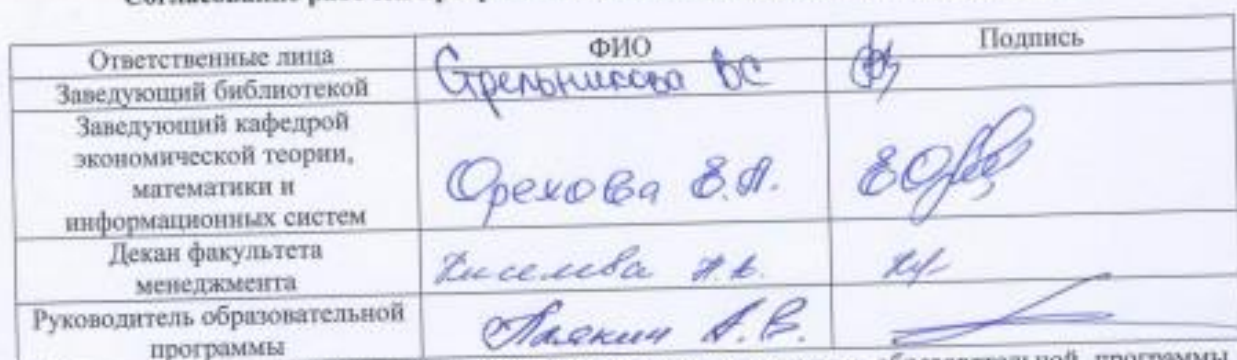 Ответственные лица ФИО Подпись
Заведующий библиотекой Стрельникова ВС
Заведующий кафедрой
экономической теории,
математики и
информационных систем Орехова Е.А.
Декан факультета
менеджмента Киселева
Руководитель образовательной
программы А.В.
образовательной программы